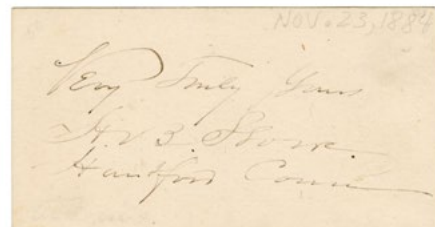 NOV. 23, 1884
Very Truly Yours
H. B. Stowe
Hartford Conn